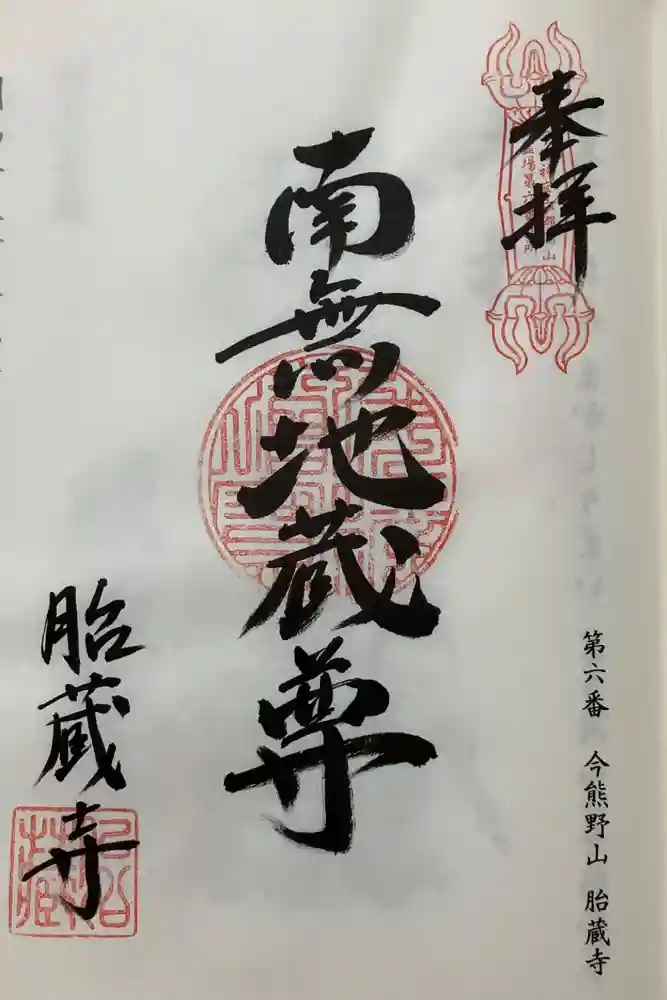 奉拝
南無地蔵尊
胎蔵寺
第六番 今熊野山 胎蔵寺